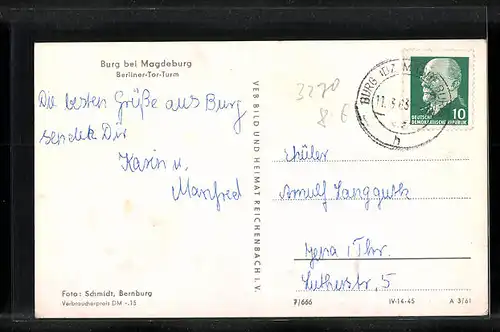 Burg bei Magdeburg
Berliner-Tor-Turm
Die besten Grüße aus Burg
sendet Dir
Karin u.
Manfred
Foto: Schmidt, Bernburg
Verbraucherpreis DM -.15
VEB BILD UND HEIMAT REICHENBACH i. V.
3270
8.E
BURG (BZ MAGDEBURG)
h
10
DEUTSCHE
DEMOKRATISCHE REPUBLIK
Schüler
Arnulf Langguth
Jena i Thr.
Lutherstr. 5
7/666
IV-14-45
A 3/61